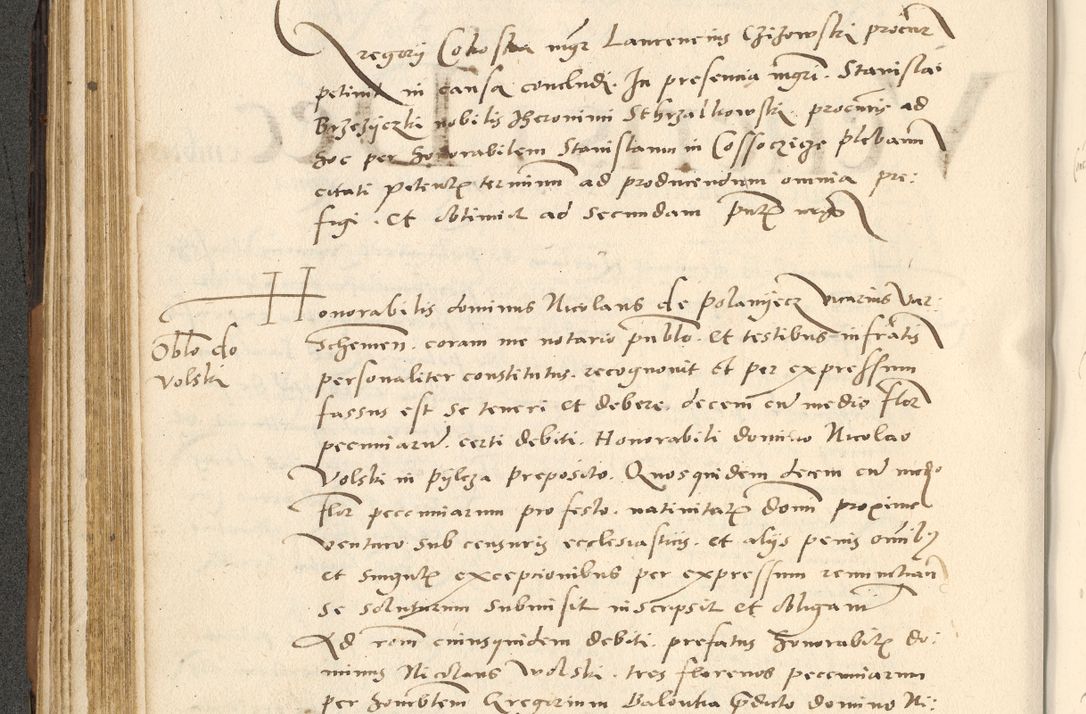 Gregorij Cohoska mgr Laurencius Czizowskj procur
petivit in causa concludj. In presencia mgri. Stanislai
Brzezyczki nobilis Iheronimi Sthrzalkowskj. procuris ad
hoc per honorabilem Stanislaum in Cossoczicze plebanum
citati petentis terminum ad producendum omnia pre:
figi. Et obtinuit ad secundam
Honorabilis dominus Nicolaus de polanijecz vicarius var:
Oblo do
Volskj
Schemen. coram me notario publo. et testibus infratis
personaliter constitutus. recognovit et per expressum
fassus est se teneri et debere decem cum medio flor
pecuniarum. certi debiti. Honorabili domino Nicolao
Volski in pijlcza preposito. Quosquidem decem cum medio
flor pecuniarum pro festo. nativitatis domini proxime
venturo sub censuris ecclesiasticis. et alijs penis omnibus
et singulis exceptionibus per expressum renuncians
se soluturum submisit inscripsit et obligavit
Ad rom cuiusquidem debiti. prefatus honorabilis do:
minus Nicolaus wolski. tres florenos pecuniarum
per honorabilem Gregorium Baloutia predicto domino Ni: